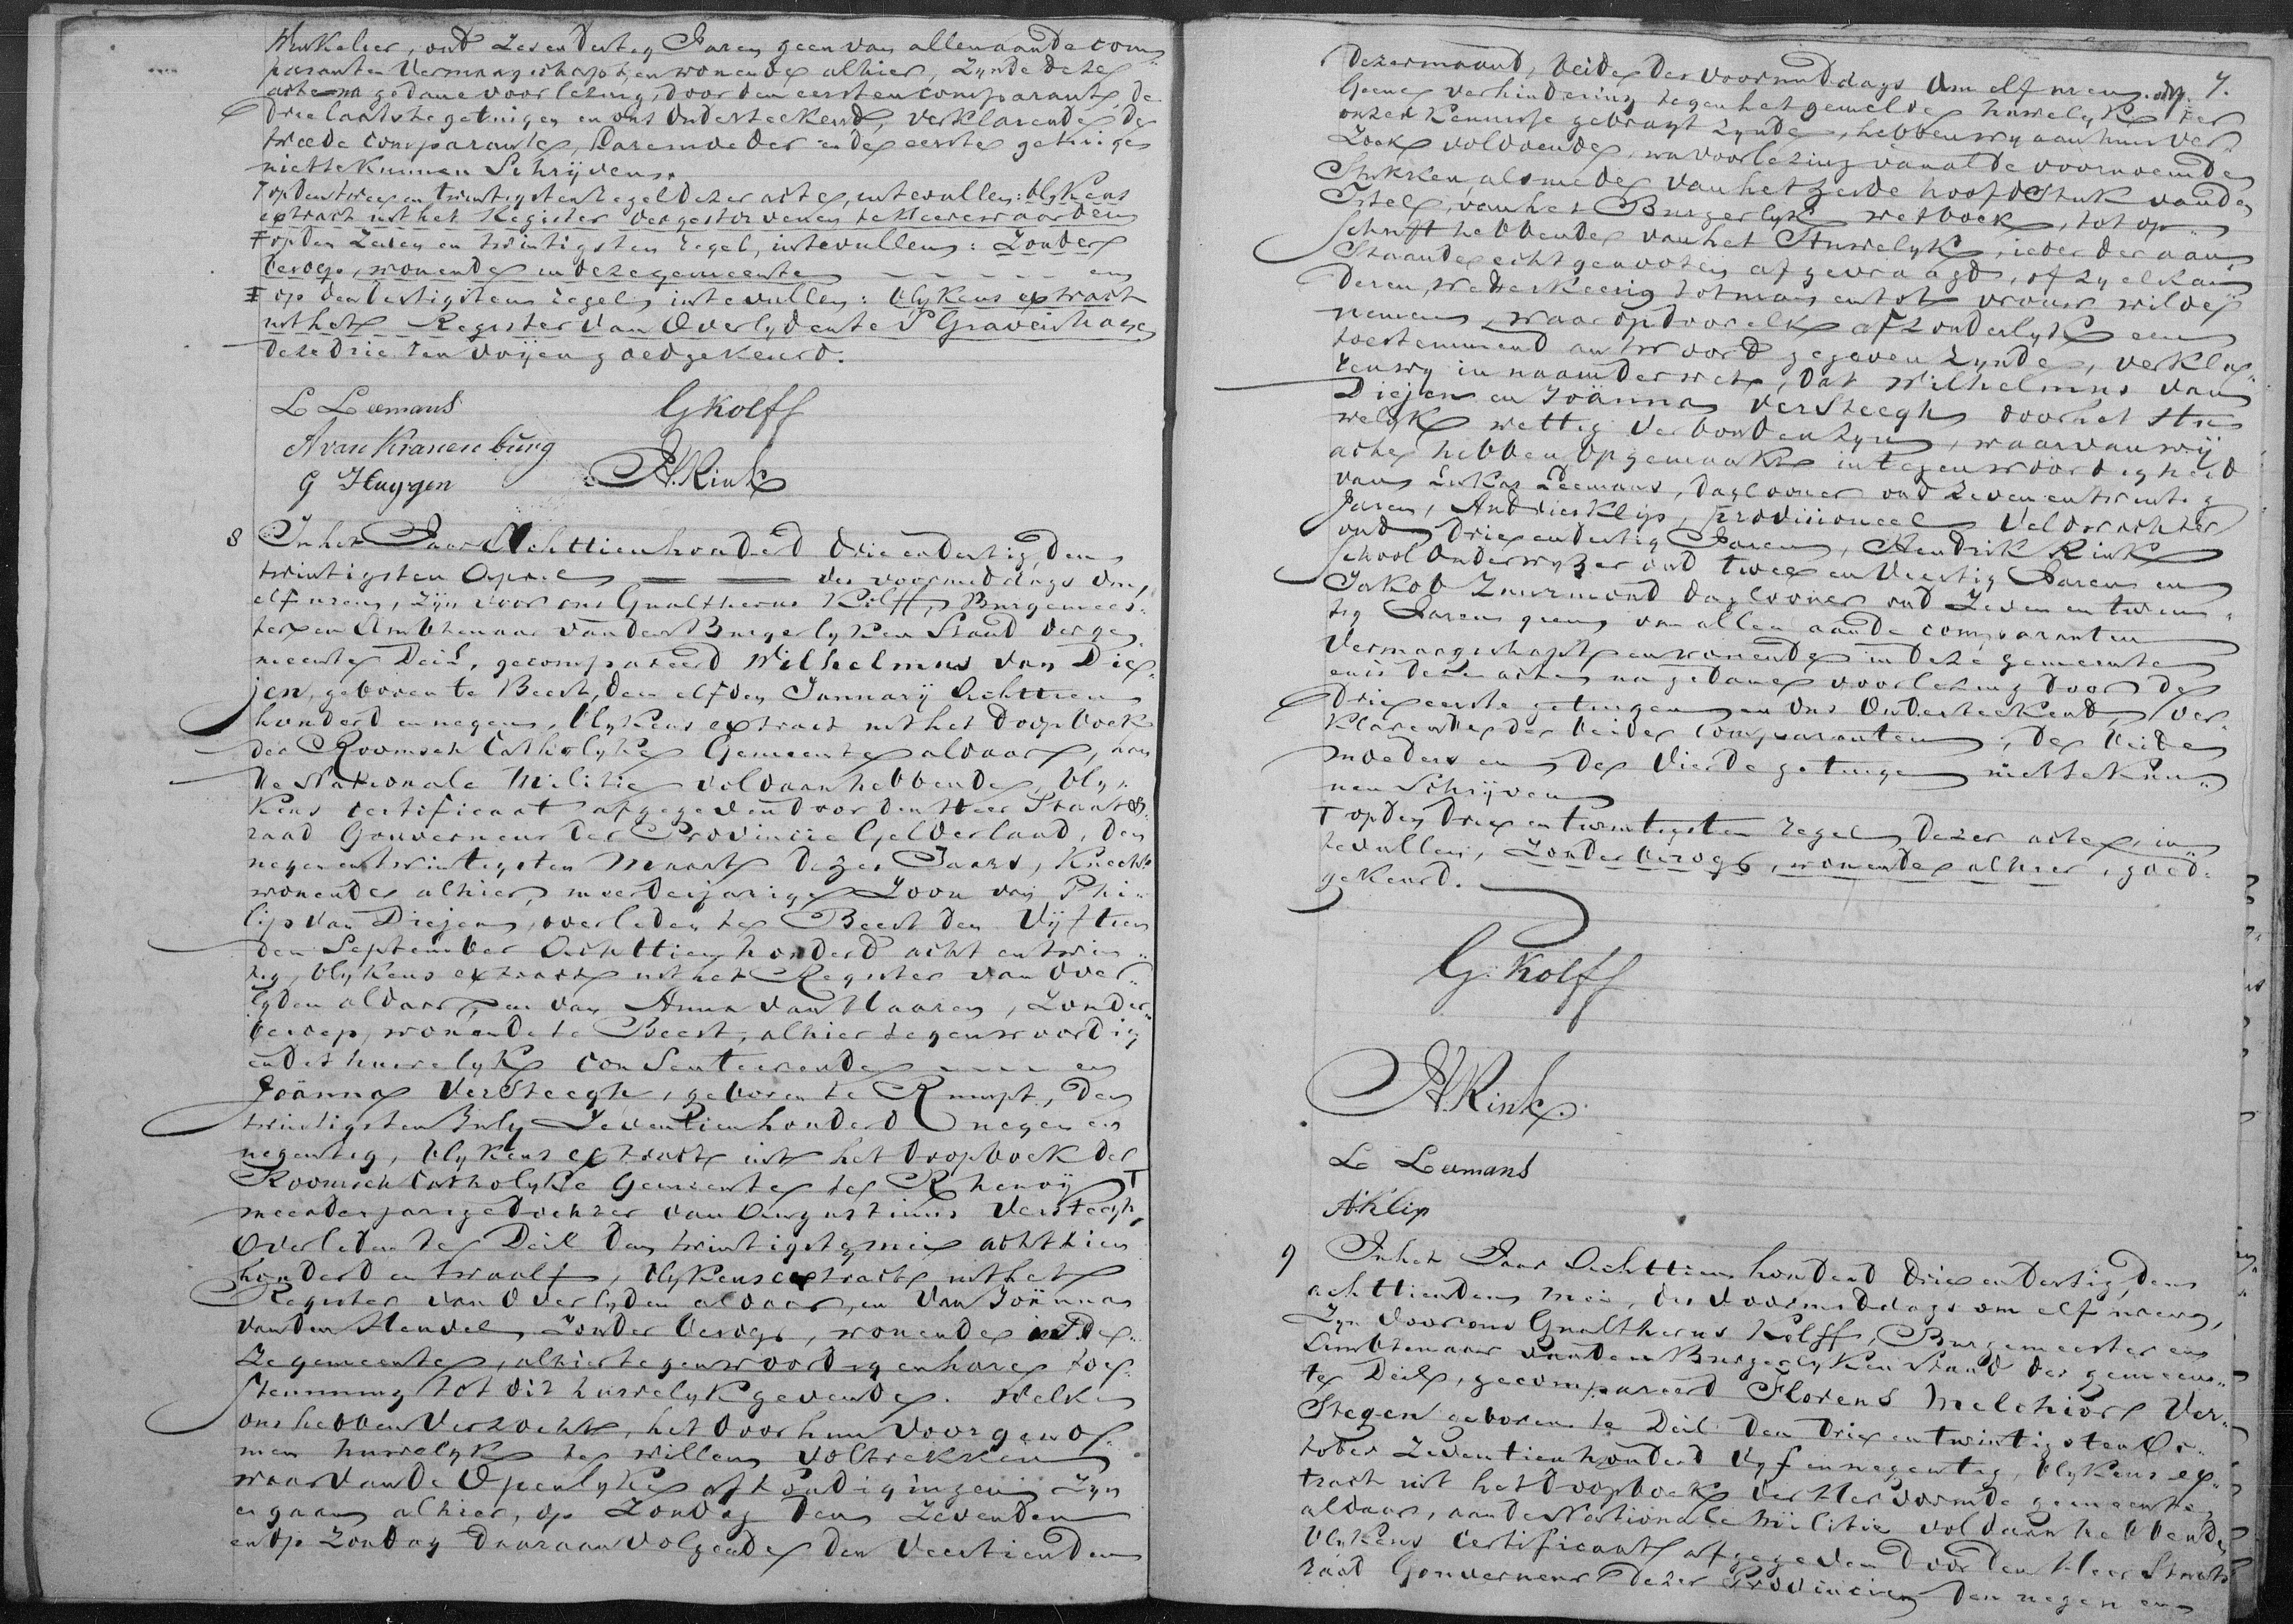 Winkelier, oud zesendertig Jaren geen van allen aan de com¬
paranten Vermaagschapt, en wonende alhier, Zynde deze
acte na gedane voorlezing, door den eersten comparant, de
drie laatste getuigen en ons onderteekend, verklarende de
tweede comparante, Haremoeder en de eerste getuige
niet te kunnen Schrijven.
T op den twee en twintigsten regel dezer acte, intevullen: blykens
extract uit het Register der gestorvenen te Heerewaarden
F op den Zeven en twintigsten regel, intevullen: Zonder
beroep, wonende in deze gemeente en
F op den dertigsten regel intevullen: blykens extract
uit het Register van Overlyden te S Gravenhage
deze drie renvoijen goedgekeurd.
L Leemans GKolff
A van Kranenburg
G Huygen HRink
8 In het Jaar Achttienhonderd drie endertig, den
twintigsten April des voormiddags om
elf uren, zijn voor ons Gualtherus Kolff, Burgemees¬
ter en Ambtenaar van den Burgerlyken Stand der ge¬
meente Deil, gecompareerd Wilhelmus van Die¬
jen, geboren te Beest, den elfden January Achttien
honderd en negen, blykens extract uit het doopboek
der Roomsch Catholyke Gemeente aldaar, aan
de Nationale Militie voldaan hebbende, bly¬
kens certificaat afgegeven door den Heer Staats
raad Gouverneur der Provincie Gelderland, den
negenentwintigsten Maart dezes Jaars, Knecht
wonende alhier, meerderjarige Zoon van Phi¬
lip van Diejen, overleden te Beest den Vijftien
den September Achttien honderd acht en twin
tig, blykens extract uit het Register van over¬
lyden aldaar, en van Anna van Haaren, Zonder
beroep, wonende te Beest, alhier tegenwoordig
en dit huwelyk consenteerende en
Joänna Versteegh, geboren te Rumpt, den
twintigsten July Zeventienhonderd negen en
negentig, blykens extract uit het doopboek der
Roomsch Catholyke Gemeente te Rhenoij T
meerderjarige dochter van Augustinus Versteegh,
Overleden te Deil den twintigsten mei achttien
honderd en twaalf, blykens extract uit het
Register van Overlyden aldaar, en van Joänna
van den Heuvel, Zonder beroep, wonende in de¬
ze gemeente, alhier tegenwoordig en hare toe¬
stemming tot dit huwelyk gevende. Welke
ons hebben verzocht, het door hun voorgeno¬
men huwelyk te willen voltrekken
waarvan de Openlyke afkondigingen Zyn
ergaan alhier, op Zondag den Zevenden
en op Zondag daaraanvolgende den Veertienden
dezer maand, beide des voormiddags om elf uren. 7.
Geene verhindering tegen het gemelde huwelyk ter
onzer kennisse gebragt zynde, hebben wy aan hun ver¬
zoek voldoende, na voorlezing van al de voornoemde
Stukken, alsmede van het zesde hoofdstuk van den
Titel, van het Burgerlyk wetboek, tot op¬
schrift hebbende van het Huwelyk, ieder der aan
Staande echtgenooten afgevraagd, of zy elkan
deren, wederkeerig tot man en tot vrouw wilden
nemen, waarop door elk afzonderlyk een
toestemmend antwoord gegeven zynde, verkla¬
ren wy in naam der wet, dat Wilhelmus van
Diejen en Joänna Versteegh door het Hu
welyk wettig verbonden zyn, waarvan wij
acte hebben opgemaakt in tegenwoordigheid
van Lukas Leemans, daglooner oud Zeven en twintig
Jaren, Andries Klip, provisioneel Veldwachter
oud drie en dertig Jaren, Hendrik Rink
Schoolonderwyzer oud twee en Veertig Jaren en
Jakob Zuurmond daglooner oud Zeven en twin¬
tig Jaren geen van allen aan de comparanten
Vermaagschapt en wonende in deze gemeente
en is deze acte na gedane voorlezing door de
drie eerste getuigen en ons Onderteekend, ver¬
klarende de beide comparanten, de beide
moeders en de Vierde getuige niet te kun¬
nen Schrijven
T op den drie en twintigsten regel dezer acte, in
tevullen, zonder beroep, wonende alhier, goed¬
gekeurd.
G. Kolff
HRink
L Leemans
A Klip
9 In het Jaar Achttien honderd drie en dertig, den
achttienden Mei, des Voormiddags om elf uren,
Zyn voor ons Gualtherus Kolff, Burgemeester en
Ambtenaar van den Burgerlyken Stand der gemeen¬
te Deil, gecompareerd Florens Melchior Ver¬
Stegen geboren te Deil den drie en twintigsten Oc¬
tober Zeventien honderd Vyf en negentig, blykens ex¬
tract uit het doopboek der Hervormde gemeente
aldaar, aan de Nationale Militie voldaan hebbende
blykens Certificaat afgegeven door den Heer Staats
raad Gouverneur dezer Provincie den negen en